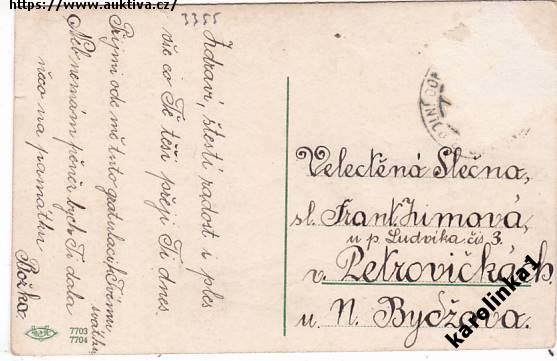 https://www.auktiva.cz/
3355
Zdraví, štěstí radost i ples
vše co Tě těší přeji Ti dnes.
Přijmi ode mě tuto gratulaci k Tvému
svátku
Neb nemám peněz bych Ti dala
něco na památku
Božka.
Velectěná Slečna,
sl. Frant. Jumová,
u p. Ludvíka čís 3.
v Petrovičkách
u N. Bydžova.
7703
7704
karolinka1